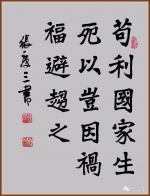 苟利國家生
死以豈因禍
福避趨之
三書